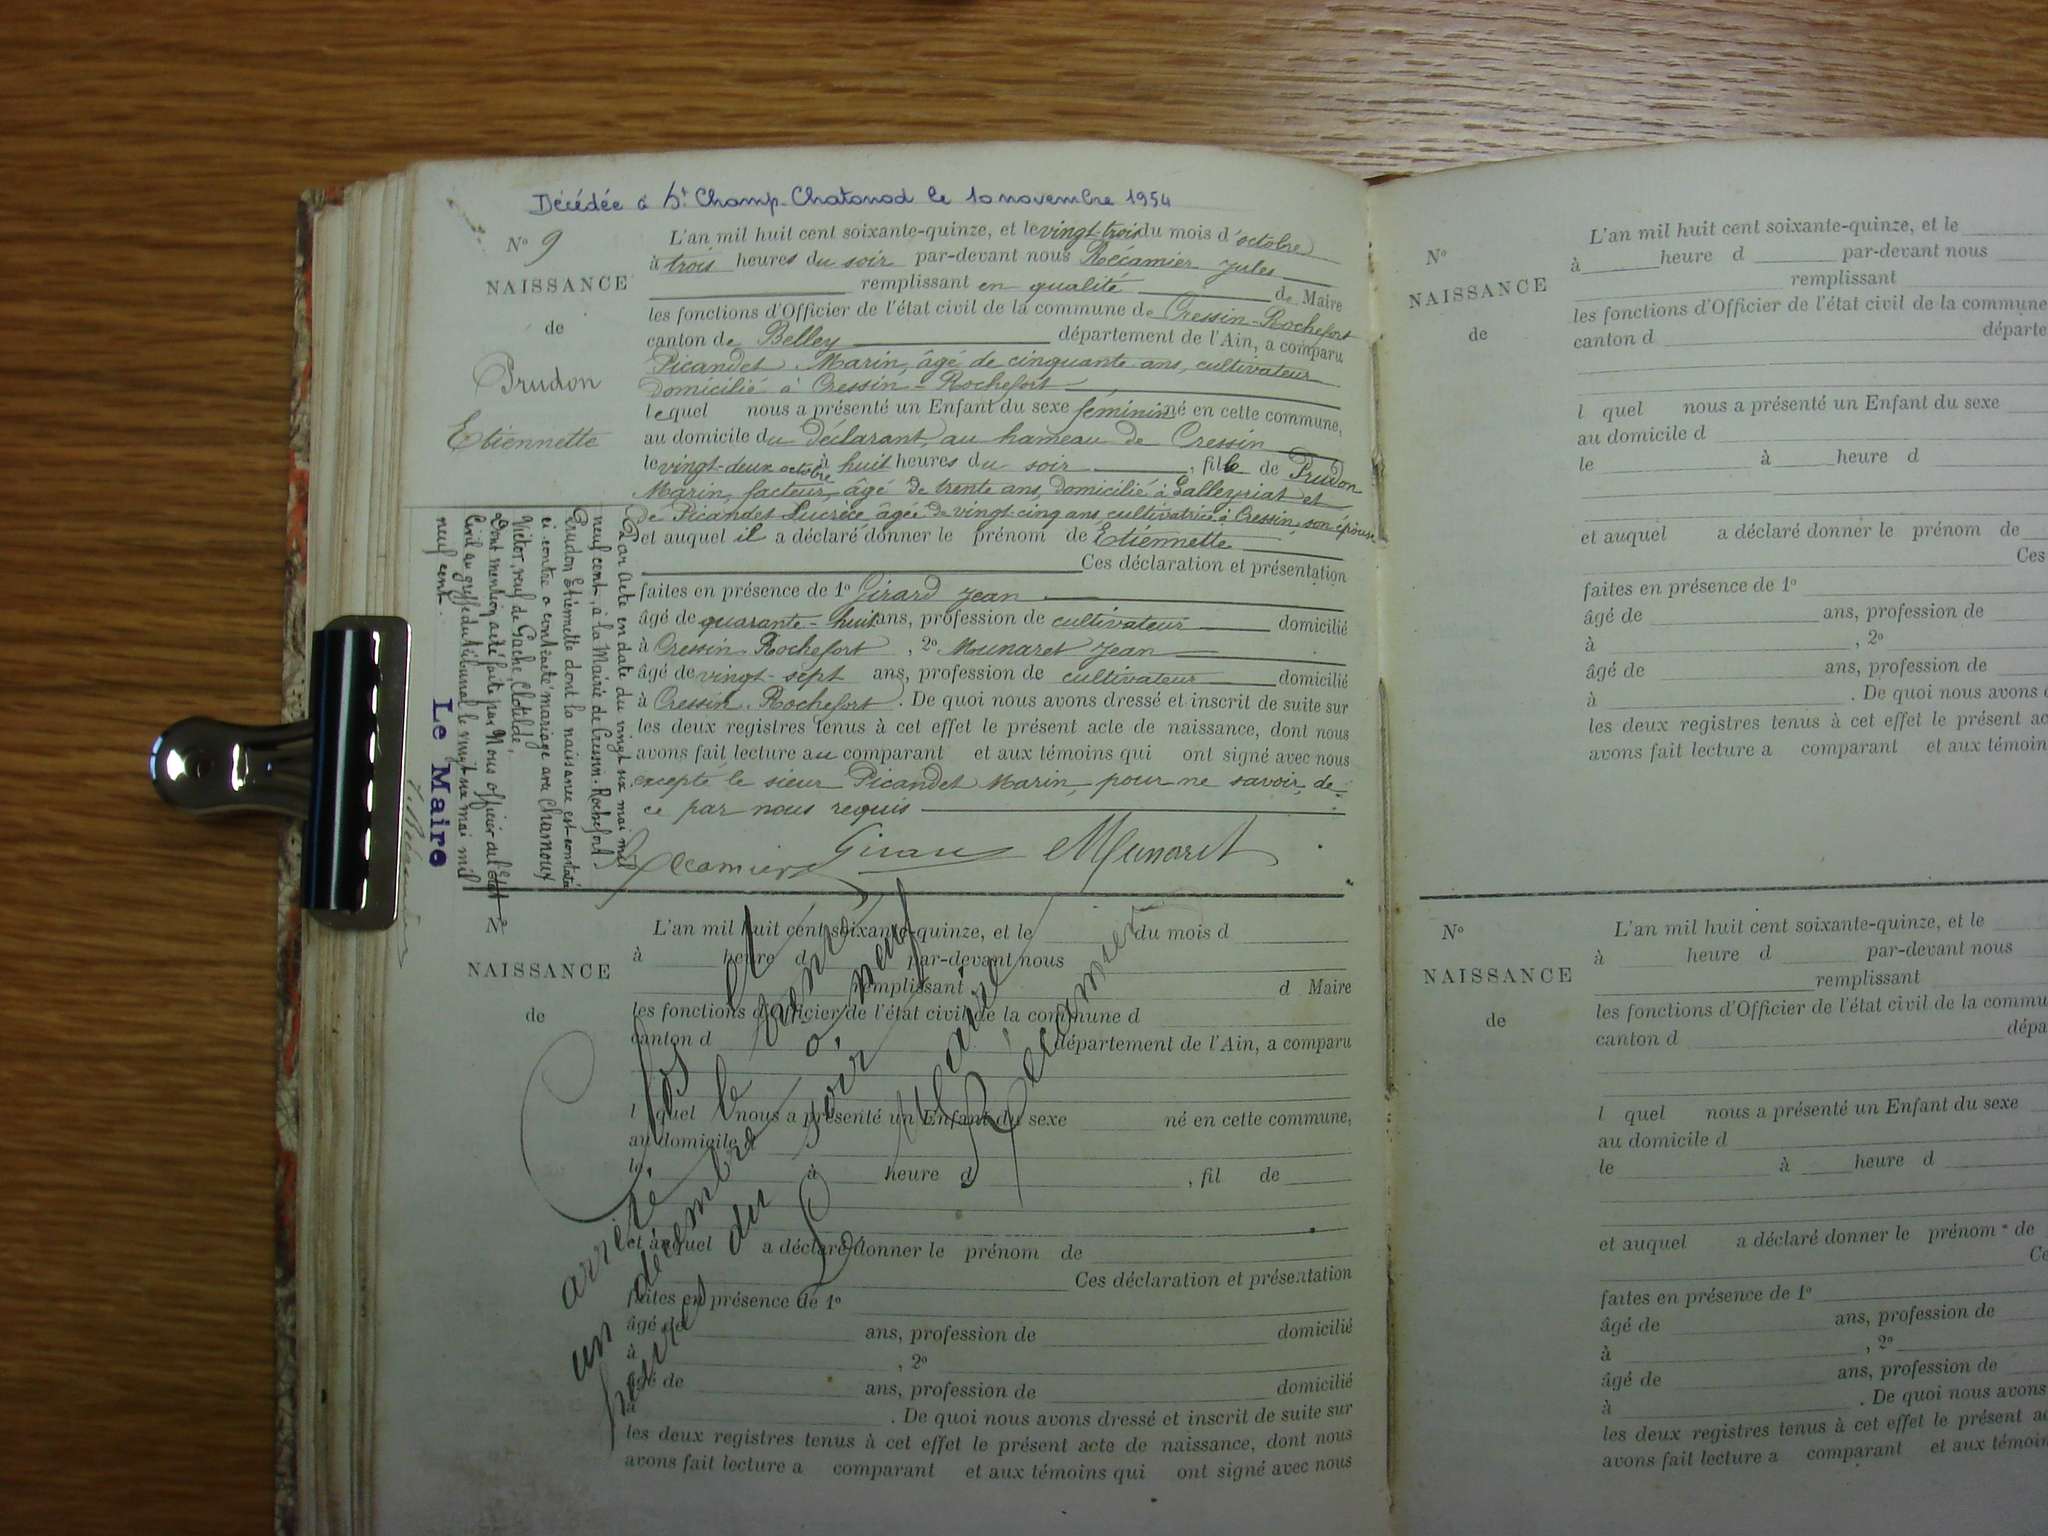 Décédée à St Champ-Chatonod le 10 novembre 1954
N° 9
NAISSANCE
de
Prudon
Etiennette
L'an mil huit cent soixante-quinze, et le vingt-trois du mois d'octobre
à trois heures du soir par-devant nous Récamier Jules
remplissant en qualité de Maire
les fonctions d'Officier de l'état civil de la commune de Cressin-Rochefort
canton de Belley département de l'Ain, a comparu
Picandet Marin, âgé de cinquante ans, cultivateur
domicilié à Cressin-Rochefort
lequel nous a présenté un Enfant du sexe féminin né en cette commune,
au domicile du déclarant, au hameau de Cressin
le vingt-deux octobre à huit heures du soir, fille de Prudon
Marin, facteur, âgé de trente ans, domicilié à Lalleyriat et
de Picandet Lucrèce âgée de vingt-cinq ans cultivatrice à Cressin, son épouse
et auquel il a déclaré donner le prénom de Etiennette
Ces déclaration et présentation
faites en présence de 1° Girard Jean
âgé de quarante-huit ans, profession de cultivateur domicilié
à Cressin-Rochefort, 2° Munaret Jean
âgé de vingt-sept ans, profession de cultivateur domicilié
à Cressin-Rochefort. De quoi nous avons dressé et inscrit de suite sur
les deux registres tenus à cet effet le présent acte de naissance, dont nous
avons fait lecture au comparant et aux témoins qui ont signé avec nous
excepté le sieur Picandet Marin, pour ne savoir, de
ce par nous requis
Récamier Girard Munaret
Par acte en date du vingt six mai mil
neuf cent, à la Mairie de Cressin-Rochefort
Prudon Etiennette dont la naissance est constatée
ci-contre a contracté mariage avec Charnoux
Victor, veuf de Gache, Clotilde,
Dont mention a été faite par Nous officier de l'état
Civil au greffe du tribunal le vingt six mai mil
neuf cent.
Le Maire
J. Récamier
N°
NAISSANCE
de
L'an mil huit cent soixante-quinze, et le du mois d
à heure d par-devant nous
remplissant d Maire
les fonctions d'Officier de l'état civil de la commune d
canton d département de l'Ain, a comparu
l quel nous a présenté un Enfant du sexe né en cette commune,
au domicile d
le à heure d , fil de
et auquel a déclaré donner le prénom de
Ces déclaration et présentation
faites en présence de 1°
âgé de ans, profession de domicilié
à , 2°
âgé de ans, profession de domicilié
à . De quoi nous avons dressé et inscrit de suite sur
les deux registres tenus à cet effet le présent acte de naissance, dont nous
avons fait lecture a comparant et aux témoins qui ont signé avec nous
Clos et
arrêté le trente
un décembre à neuf
heures du soir
Le Maire
Récamier
N°
NAISSANCE
de
L'an mil huit cent soixante-quinze, et le
à heure d par-devant nous
remplissant
les fonctions d'Officier de l'état civil de la commune
canton d départe
l quel nous a présenté un Enfant du sexe
au domicile d
le à heure d
et auquel a déclaré donner le prénom de
Ces
faites en présence de 1°
âgé de ans, profession de
à , 2°
âgé de ans, profession de
à . De quoi nous avons d
les deux registres tenus à cet effet le présent ac
avons fait lecture a comparant et aux témoin
N°
NAISSANCE
de
L'an mil huit cent soixante-quinze, et le
à heure d par-devant nous
remplissant
les fonctions d'Officier de l'état civil de la commu
canton d dépa
l quel nous a présenté un Enfant du sexe
au domicile d
le à heure d
et auquel a déclaré donner le prénom de
Ce
faites en présence de 1°
âgé de ans, profession de
à , 2°
âgé de ans, profession de
à . De quoi nous avons
les deux registres tenus à cet effet le présent a
avons fait lecture a comparant et aux témoin